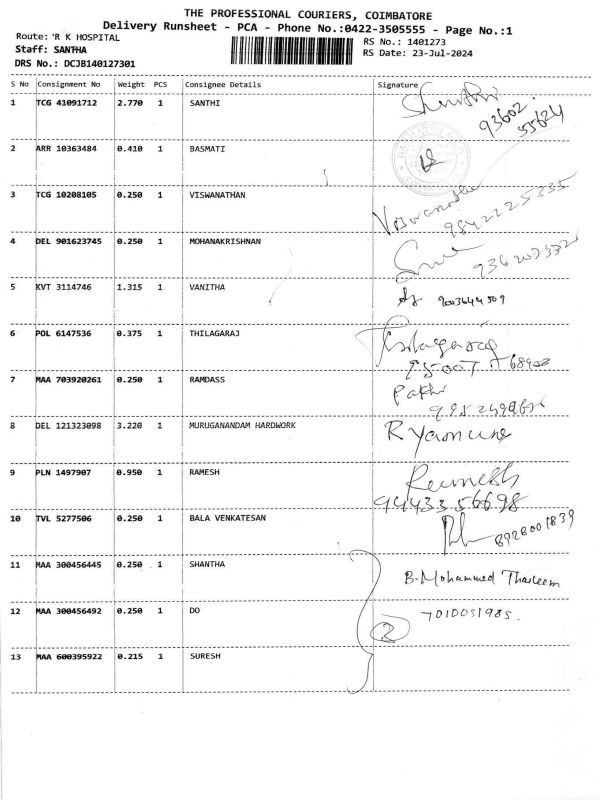 THE PROFESSIONAL COURIERS, COIMBATORE
Delivery Runsheet - PCA - Phone No.:0422-3505555 - Page No.:1
Route: 'R K HOSPITAL
RS No.: 1401273
Staff: SANTHA
RS Date: 23-Jul-2024
DRS No.: DCJB140127301
S No Consignment No Weight PCS Consignee Details Signature
1 TCG 41091712 2.770 1 SANTHI
93602
55624
2 ARR 10363484 0.410 1 BASMATI
3 TCG 10208105 0.250 1 VISWANATHAN Viswanatha
9842225335
4 DEL 901623745 0.250 1 MOHANAKRISHNAN
5 KVT 3114746 1.315 1 VANITHA 9003644509
6 POL 6147536 0.375 1 THILAGARAJ Thilagaraj
7 MAA 703920261 0.250 1 RAMDASS
8 DEL 121323098 3.220 1 MURUGANANDAM HARDWORK
9 PLN 1497907 0.950 1 RAMESH Ramesh
9444335 6698
10 TVL 5277506 0.250 1 BALA VENKATESAN 8928001839
11 MAA 300456445 0.250 1 SHANTHA B. Mohammed Thasleem
12 MAA 300456492 0.250 1 DO 7010051985.
2
13 MAA 600395922 0.215 1 SURESH